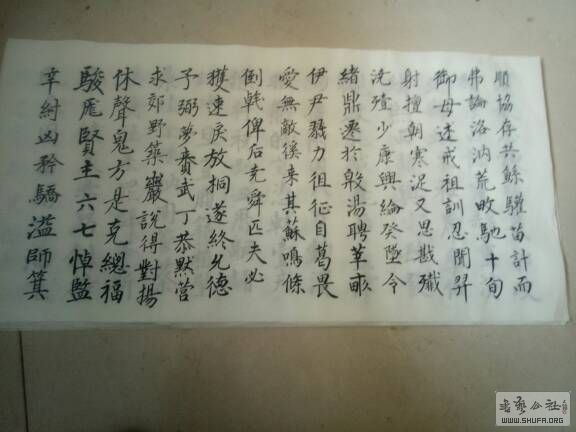 順協存共鯀驩苗計而
弗論洛汭荒畋馳十旬
御母述戒祖訓忍聞羿
射擅朝寒浞又思戡殲
澆殪少康興綸癸墜今
緒鼎遷於毫湯聘莘畝
伊尹戮力徂征自葛畏
愛無敵徯来其蘇鳴條
倒戟俾后堯舜匹夫必
獲速戾放桐遂終允德
予弼夢賚武丁恭默營
求郊野築巖說得對揚
休聲鬼方是克總福
駿厖賢主六七悼監
辛紂凶矜驕溢師箕
書藝公社
WWW.SHUFA.ORG